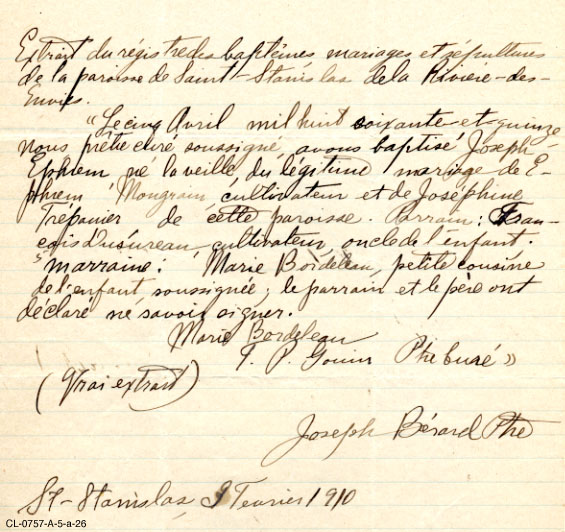 Extrait du régistre des baptêmes mariages et sépultures
de la paroisse de Saint-Stanislas de la Rivière-des-
Envies.
"Le cinq Avril mil huit soixante-et-quinze
nous prêtre curé soussigné avons baptisé Joseph-
Ephrem né la veille du légitime mariage de E-
phrem Mongrain cultivateur et de Joséphine
Trépanier de cette paroisse. Parrain: Fran-
cois Dusureau cultivateur, oncle de l'enfant.
marraine: Marie Bordeleau, petite cousine
de l'enfant, soussignée; le parrain et le père ont
déclaré ne savoir signer.
Marie Bordeleau
F. P. Gouin Ptre Curé »
(Vrai extrait)
Joseph Bérard Ptre
St-Stanislas, 9 Fevrier 1910
CL-0757-A-5-a-26